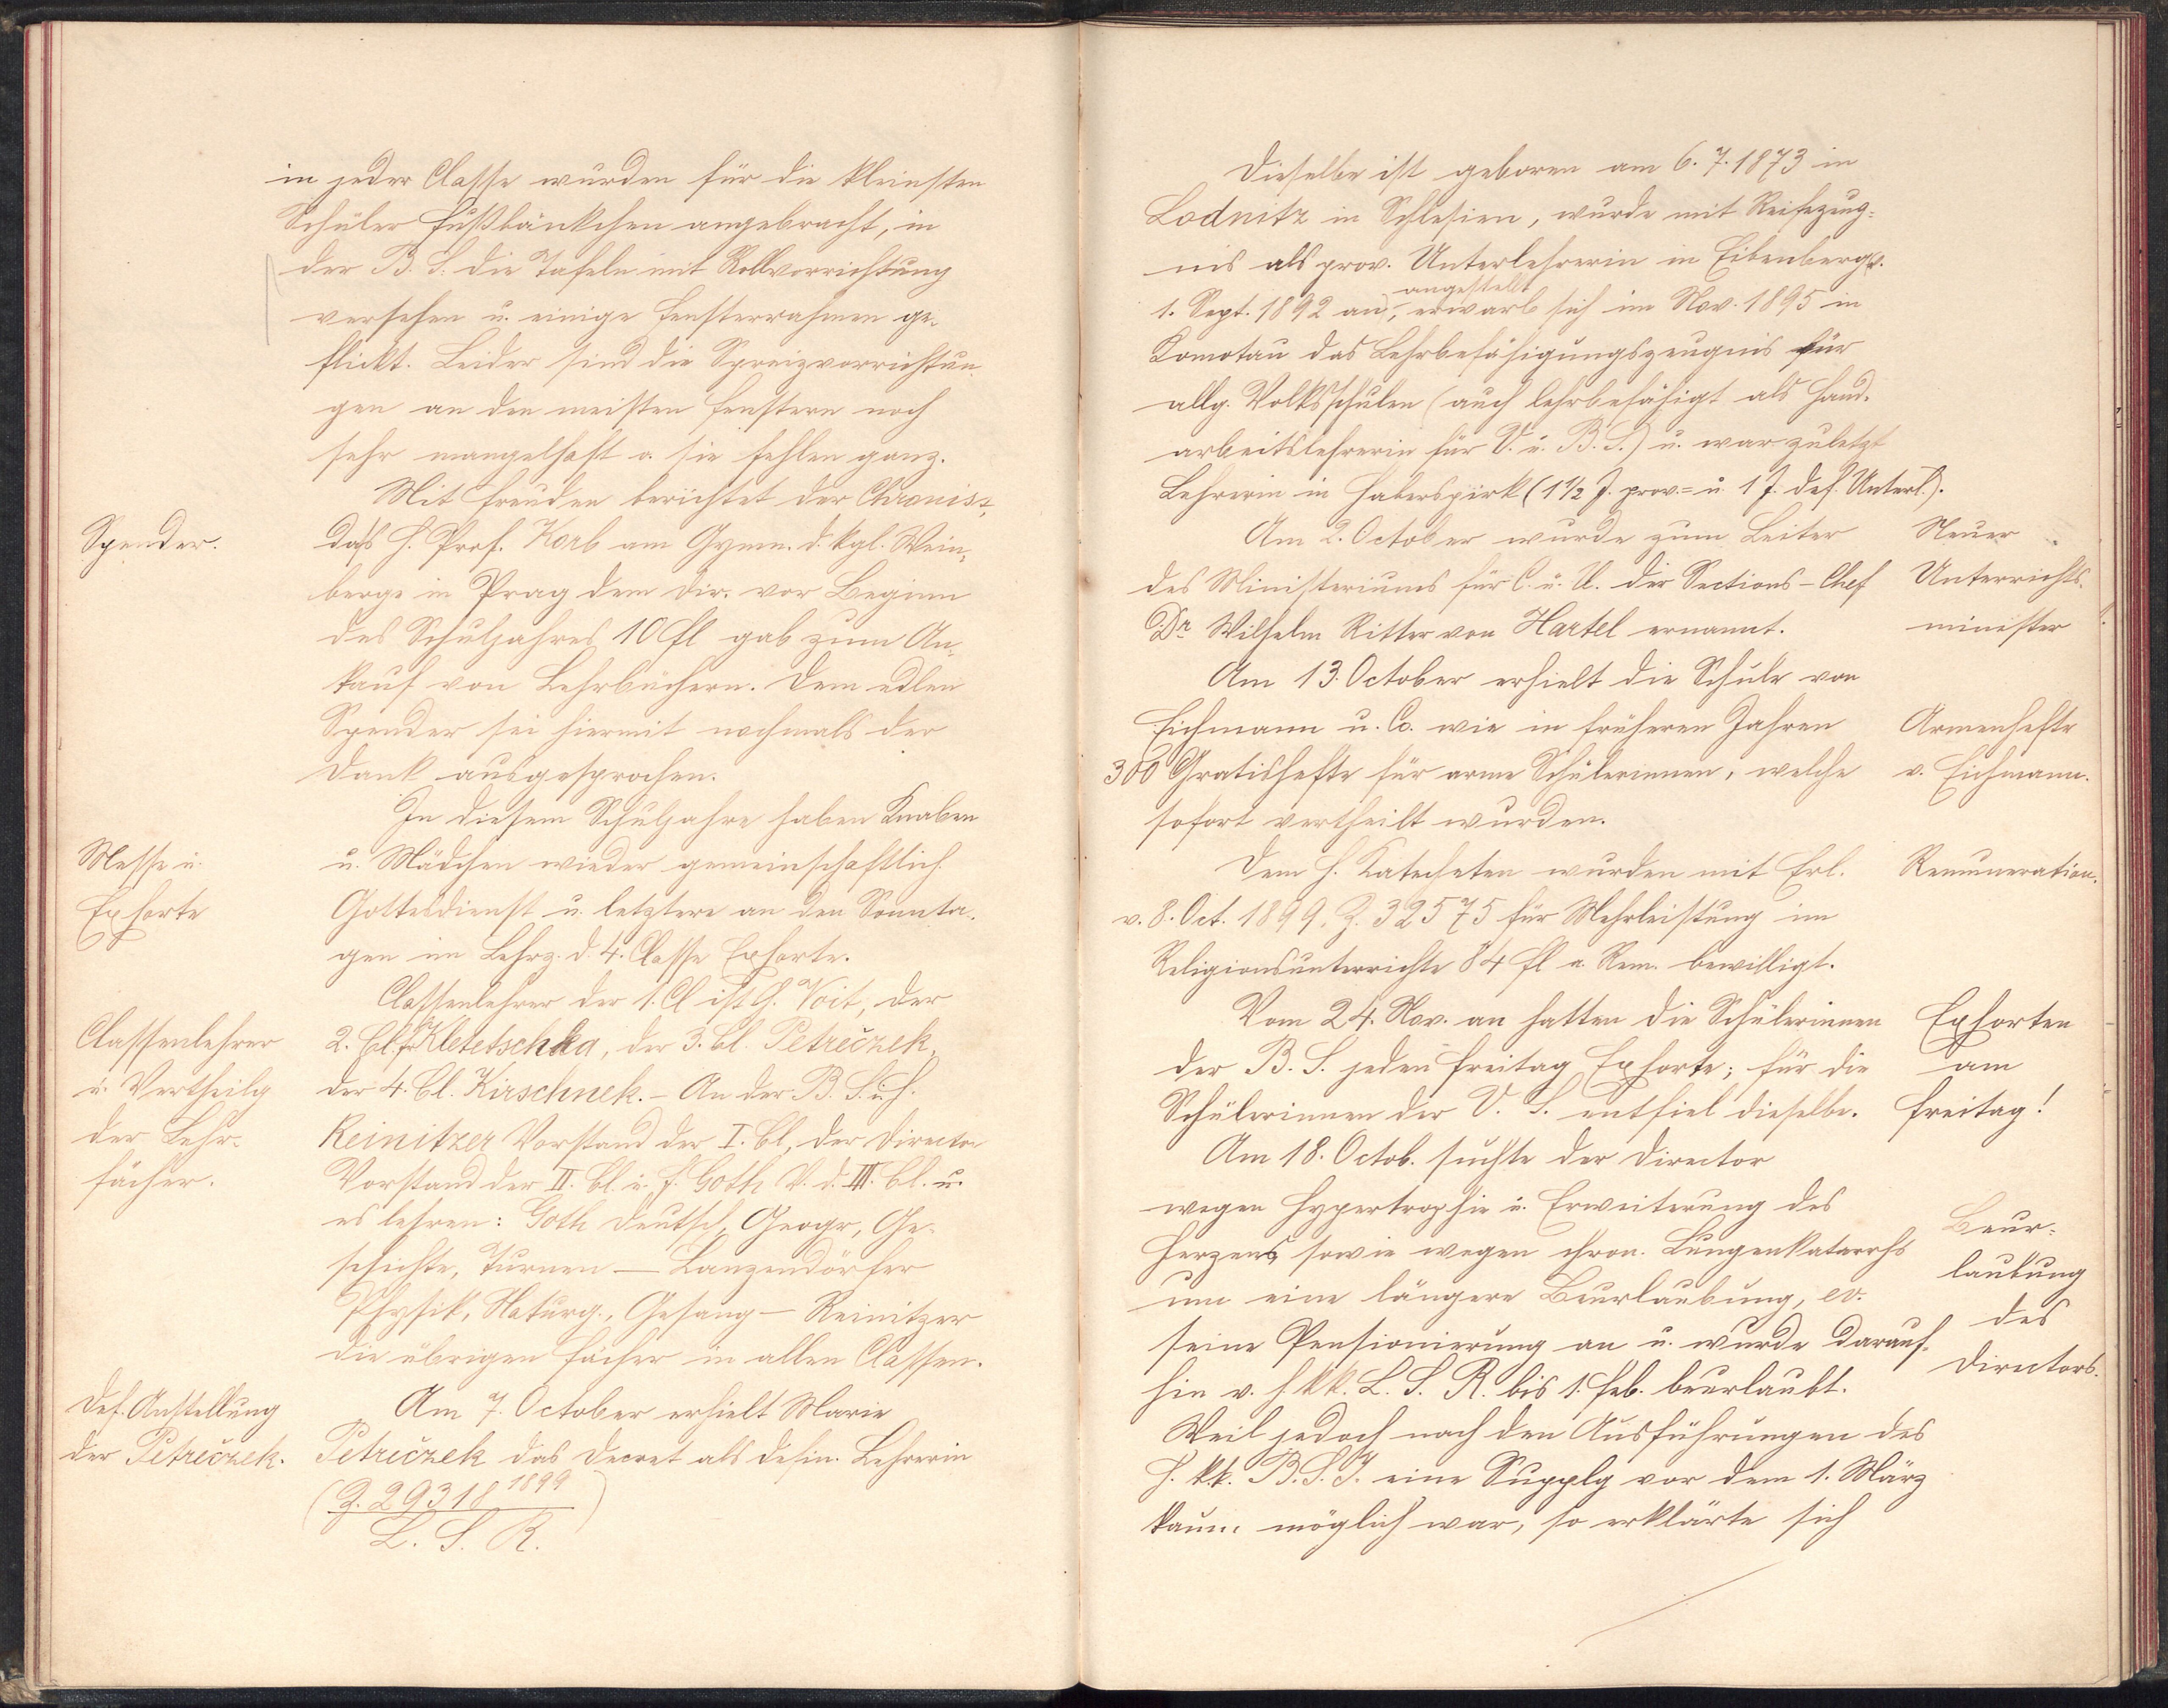 in jeder Classe wurden für die kleinsten
Schüler Fußbänkchen angebracht, in
der B. S. die Tafeln mit Rollvorrichtung
versehen u. einige Fensterrahmen ge-
flickt. Leider sind die Spreizvorrichtun-
gen an den meisten Fenstern noch
sehr mangelhaft o. sie fehlen ganz.
Mit Freuden berichtet der Chronist,
Spender.
daß H. Prof. Korb am Gymn. d. kgl. Wein-
berge in Prag dem Dir. vor Beginn
des Schuljahres 10 fl gab zum An-
kauf von Lehrbüchern. Dem edlen
Spender sei hiermit nochmals der
Dank ausgesprochen.
In diesem Schuljahre haben Knaben
Messe u.
u. Mädchen wieder gemeinschaftlich
Exhorte
Gottesdienst u. letztere an den Sonnta-
gen im Lehrz. d. 4. Classe Exhorte.
Classenlehrer der 1. Cl ist H. Voit, der
Classenlehrer
2. Cl. Fr. Kletetschka, der 3. Cl. Petreczek,
u. Vertheilg
der 4. Cl. Kirschnek. – An der B. S. ist H.
der Lehr-
Reinitzer Vorstand der I. Cl, der Director
fächer.
Vorstand der II. Cl. u. F. Goth V. d. III. Cl. u.
es lehren: Goth Deutsch, Geogr, Ge-
schichte, Turnen — Lanzendörfer
Physik, Naturg., Gesang — Reinitzer
die übrigen Fächer in allen Classen.
Def. Anstellung
Am 7. October erhielt Marie
der Petreczek.
Petreczek das Decret als defin. Lehrerin
(Z. 29318 1899)
L. S. R.
Dieselbe ist geboren am 6. 7. 1873 in
Lodnitz in Schlesien, wurde mit Reifezeug-
nis als prov. Unterlehrerin in Eibenberg v.
angestellt
1. Sept. 1892 an, erwarb sich im Nov. 1895 in
Komotau das Lehrbefähigungszeugnis für
allg. Volksschulen (auch lehrbefähigt als Hand-
arbeitslehrerin für V. u. B. S.) u. war zuletzt
Lehrerin in Haberspirk (1 1/2 J. prov.= u. 1 J. def. Unterl.).
Am 2. October wurde zum Leiter
Neuer
des Ministeriums für C. u. U. der Sections-Chef
Unterrichts-
Dr Wilhelm Ritter von Hartel ernannt.
minister
Am 13. October erhielt die Schule von
Eichmann u. Co. wie in früheren Jahren
Armenhefte
300 Gratishefte für arme Schülerinnen, welche
v. Eichmann.
sofort vertheilt wurden.
Dem H. Katecheten wurden mit Erl.
Remuneration.
v. 8. Oct. 1899. Z. 32575 für Mehrleistung im
Religionsunterrichte 84 fl a. Rem. bewilligt.
Vom 24. Nov. an hatten die Schülerinnen
Exhorten
der B. S. jeden Freitag Exhorte; für die
am
Schülerinnen der V. S. entfiel dieselbe.
Freitag!
Am 18. Octob. suchte der Director
wegen Hypertrophie u. Erweiterung des
Beur-
Herzens, sowie wegen chron. Lungenkatarrhs
laubung
um eine längere Beurlaubung, ev.
des
seine Pensionierung an u. wurde darauf-
Directors.
hin v. h. k.k. L. S. R. bis 1. Feb. beurlaubt.
Weil jedoch nach den Ausführungen des
H. k.k. B. S. I. eine Supplg vor dem 1. März
kaum möglich war, so erklärte sich